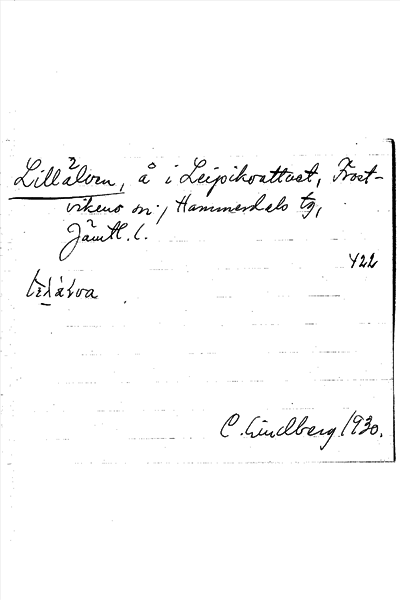 Lillälven, å i Leipikvattnet, Frost-
vikens sn., Hammerdals tg,
Jämtl. l.
422
C. Lindberg 1930.